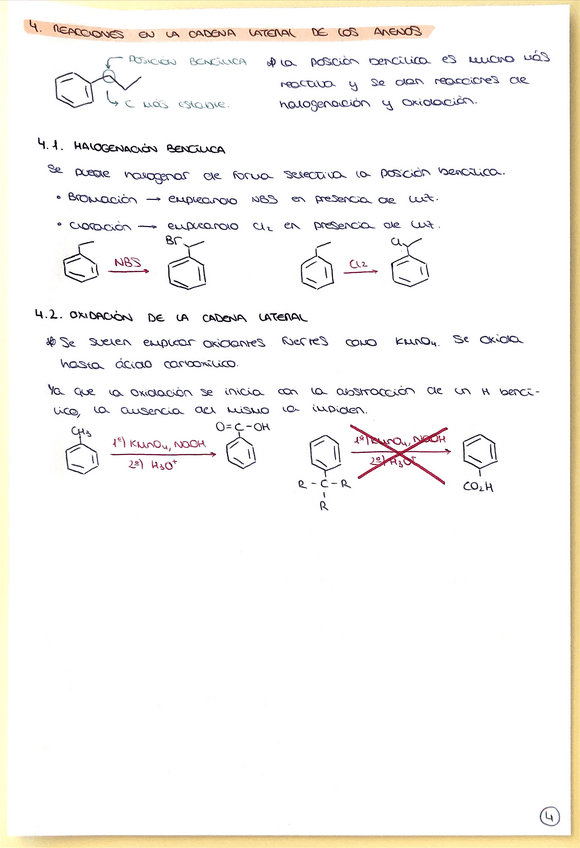 4. REACCIONES EN LA CADENA LATERAL DE LOS ARENOS
POSICIÓN BENCÍLICA
C MÁS ESTABLE.
* La posición bencílica es mucho más
reactiva y se dan reacciones de
halogenación y oxidación.
4.1. HALOGENACIÓN BENCÍLICA
Se puede halogenar de forma selectiva la posición bencílica.
• Bromación → empleando NBS en presencia de luz.
• Cloración → empleando Cl2 en presencia de luz.
Br
Cl
NBS
Cl2
4.2. OXIDACIÓN DE LA CADENA LATERAL
* Se suelen emplear oxidantes fuertes como KMnO4. Se oxida
hasta ácido carboxílico.
Ya que la oxidación se inicia con la abstracción de un H bencí-
lico, la ausencia del mismo la impiden.
CH3
1º) KMnO4, NaOH
2º) H3O+
O=C-OH
R-C-R
R
1º) KMnO4, NaOH
2º) H3O+
CO2H
4